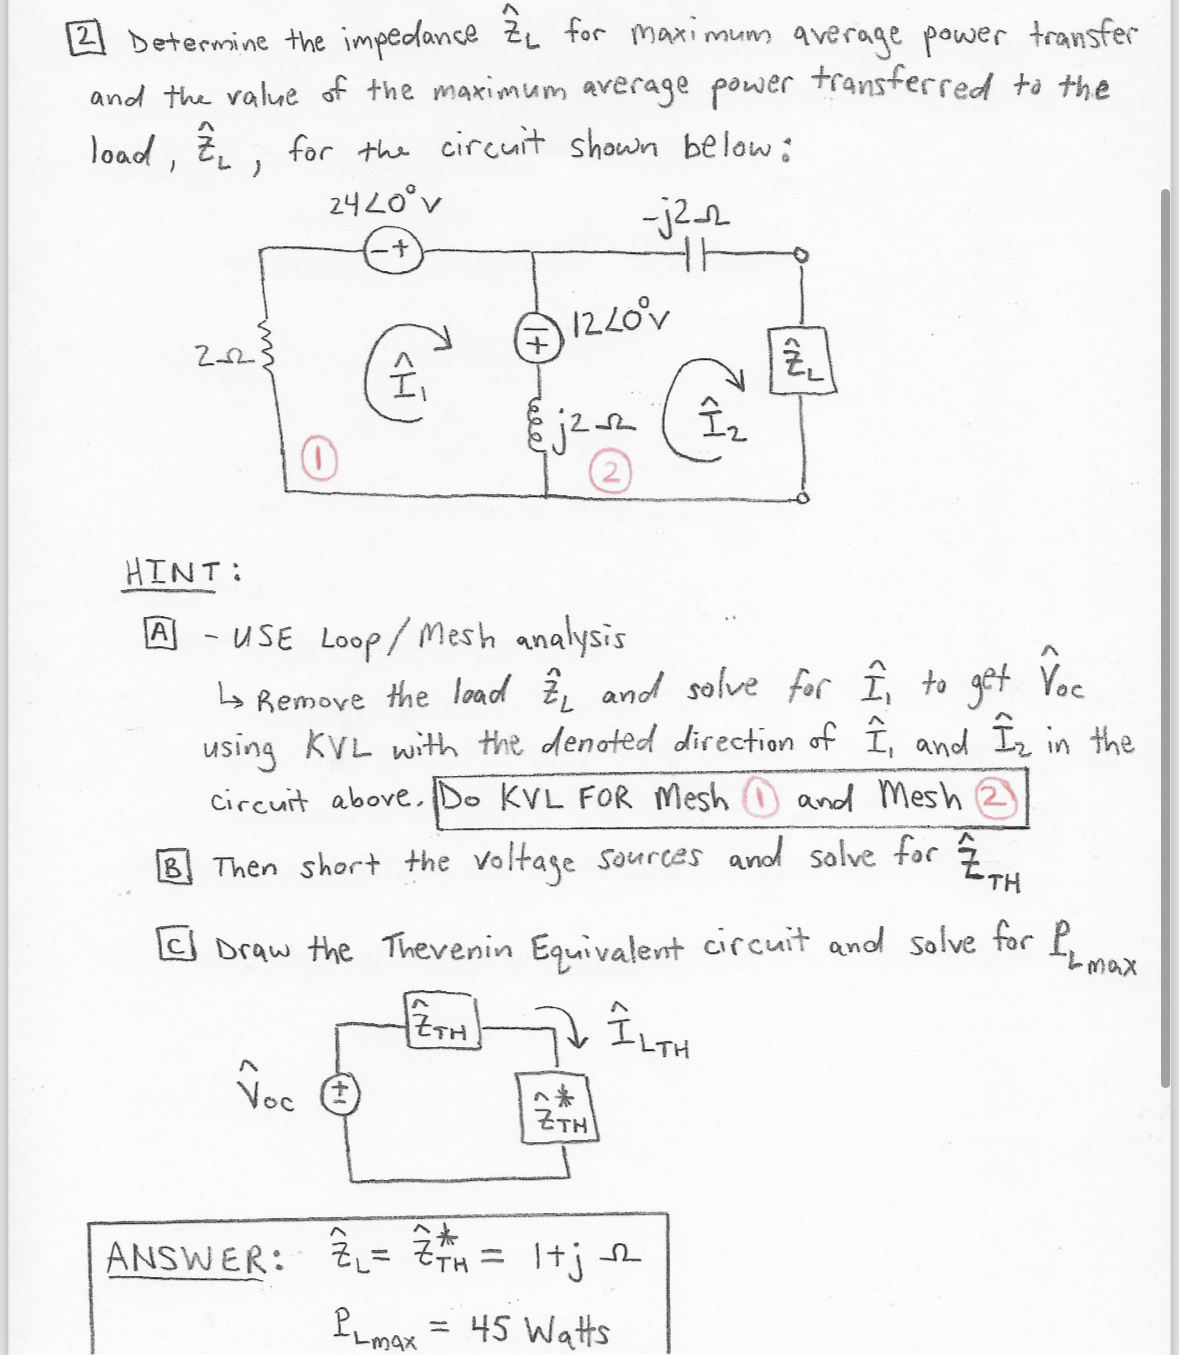 2 Determine the impedance Ẑ_L for maximum average power transfer
and the value of the maximum average power transferred to the
load, Ẑ_L, for the circuit shown below:
24∠0° V
-j2 Ω
- +
12∠0° V
- +
2 Ω
Î₁
Ẑ_L
j2 Ω
Î₂
1
2
HINT:
A - USE Loop/Mesh analysis
↳ Remove the load Ẑ_L and solve for Î₁ to get V̂oc
using KVL with the denoted direction of Î₁ and Î₂ in the
circuit above. Do KVL FOR Mesh 1 and Mesh 2
B Then short the voltage sources and solve for Ẑ_TH
C Draw the Thevenin Equivalent circuit and solve for P_Lmax
Ẑ_TH
Î_LTH
V̂oc
+ -
Ẑ*_TH
ANSWER: Ẑ_L = Ẑ*_TH = 1+j Ω
P_Lmax = 45 Watts